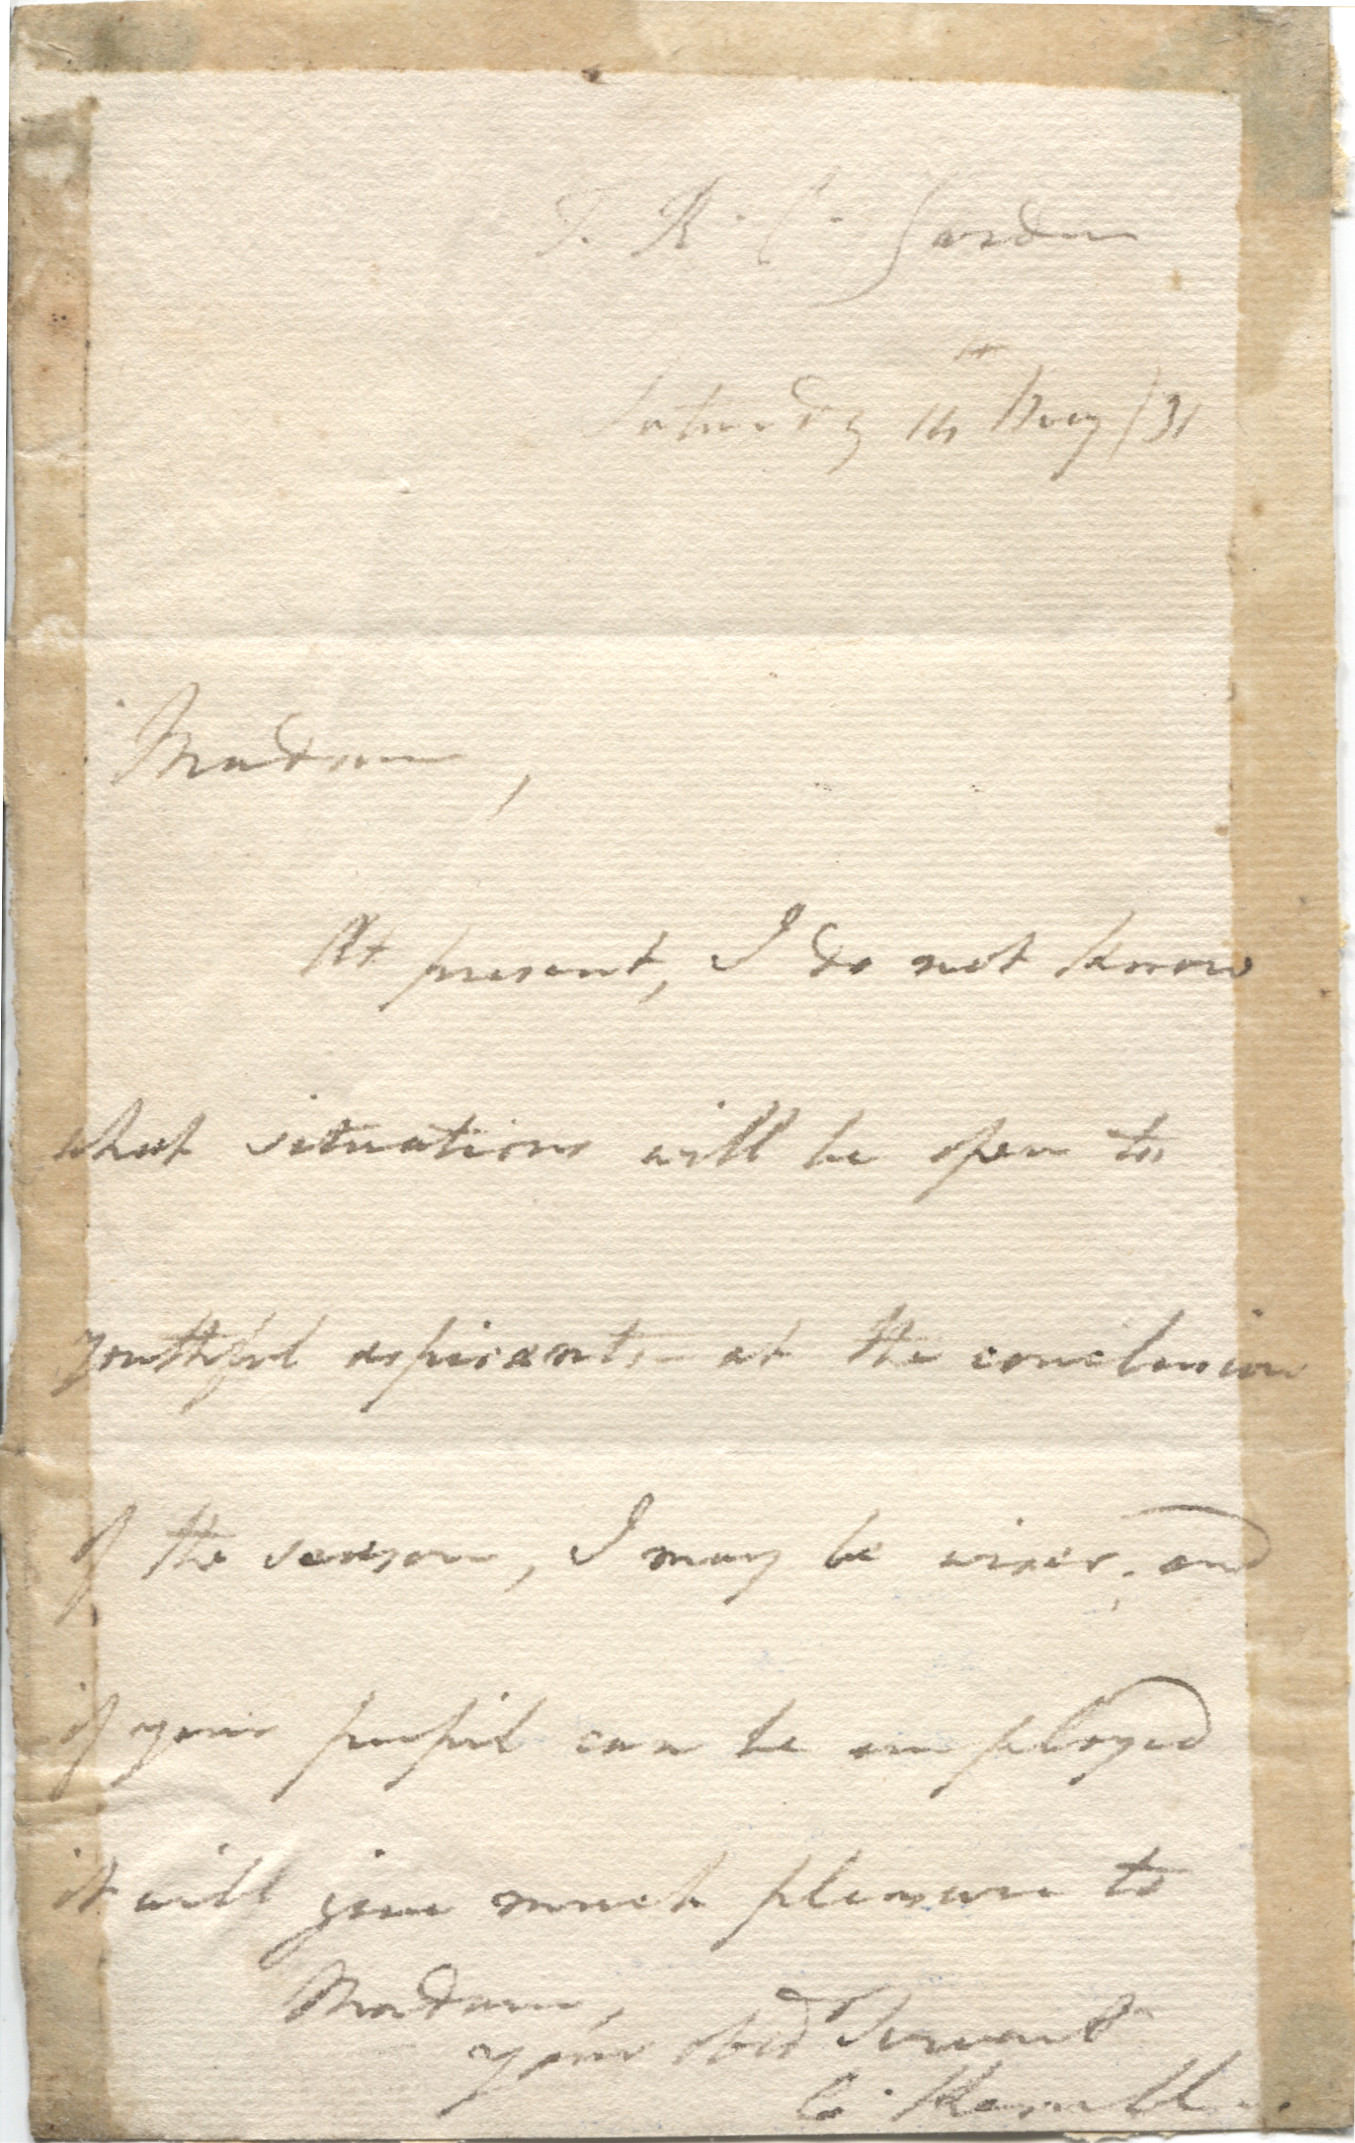 T. R. C. Garden
Saturday 14th May /31
Madam,
At present, I do not know
what situations will be open to
youthful aspirants - at the conclusion
of the season, I may be wiser; and
if your pupil can be employed
it will give much pleasure to
Madam,
your obedt Servant
C. Kemble.